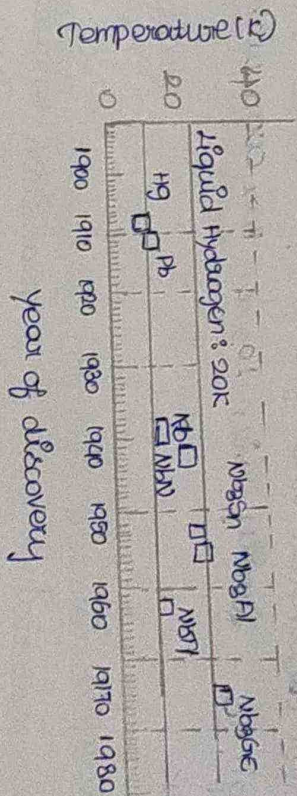 Temperature (K)
40
20
0
Liquid Hydrogen: 20K
Hg
Pb
Nb
NbN
Nb3Sn
Nb3Al
NbTi
Nb3Ge
1900 1910 1920 1930 1940 1950 1960 1970 1980
year of discovery